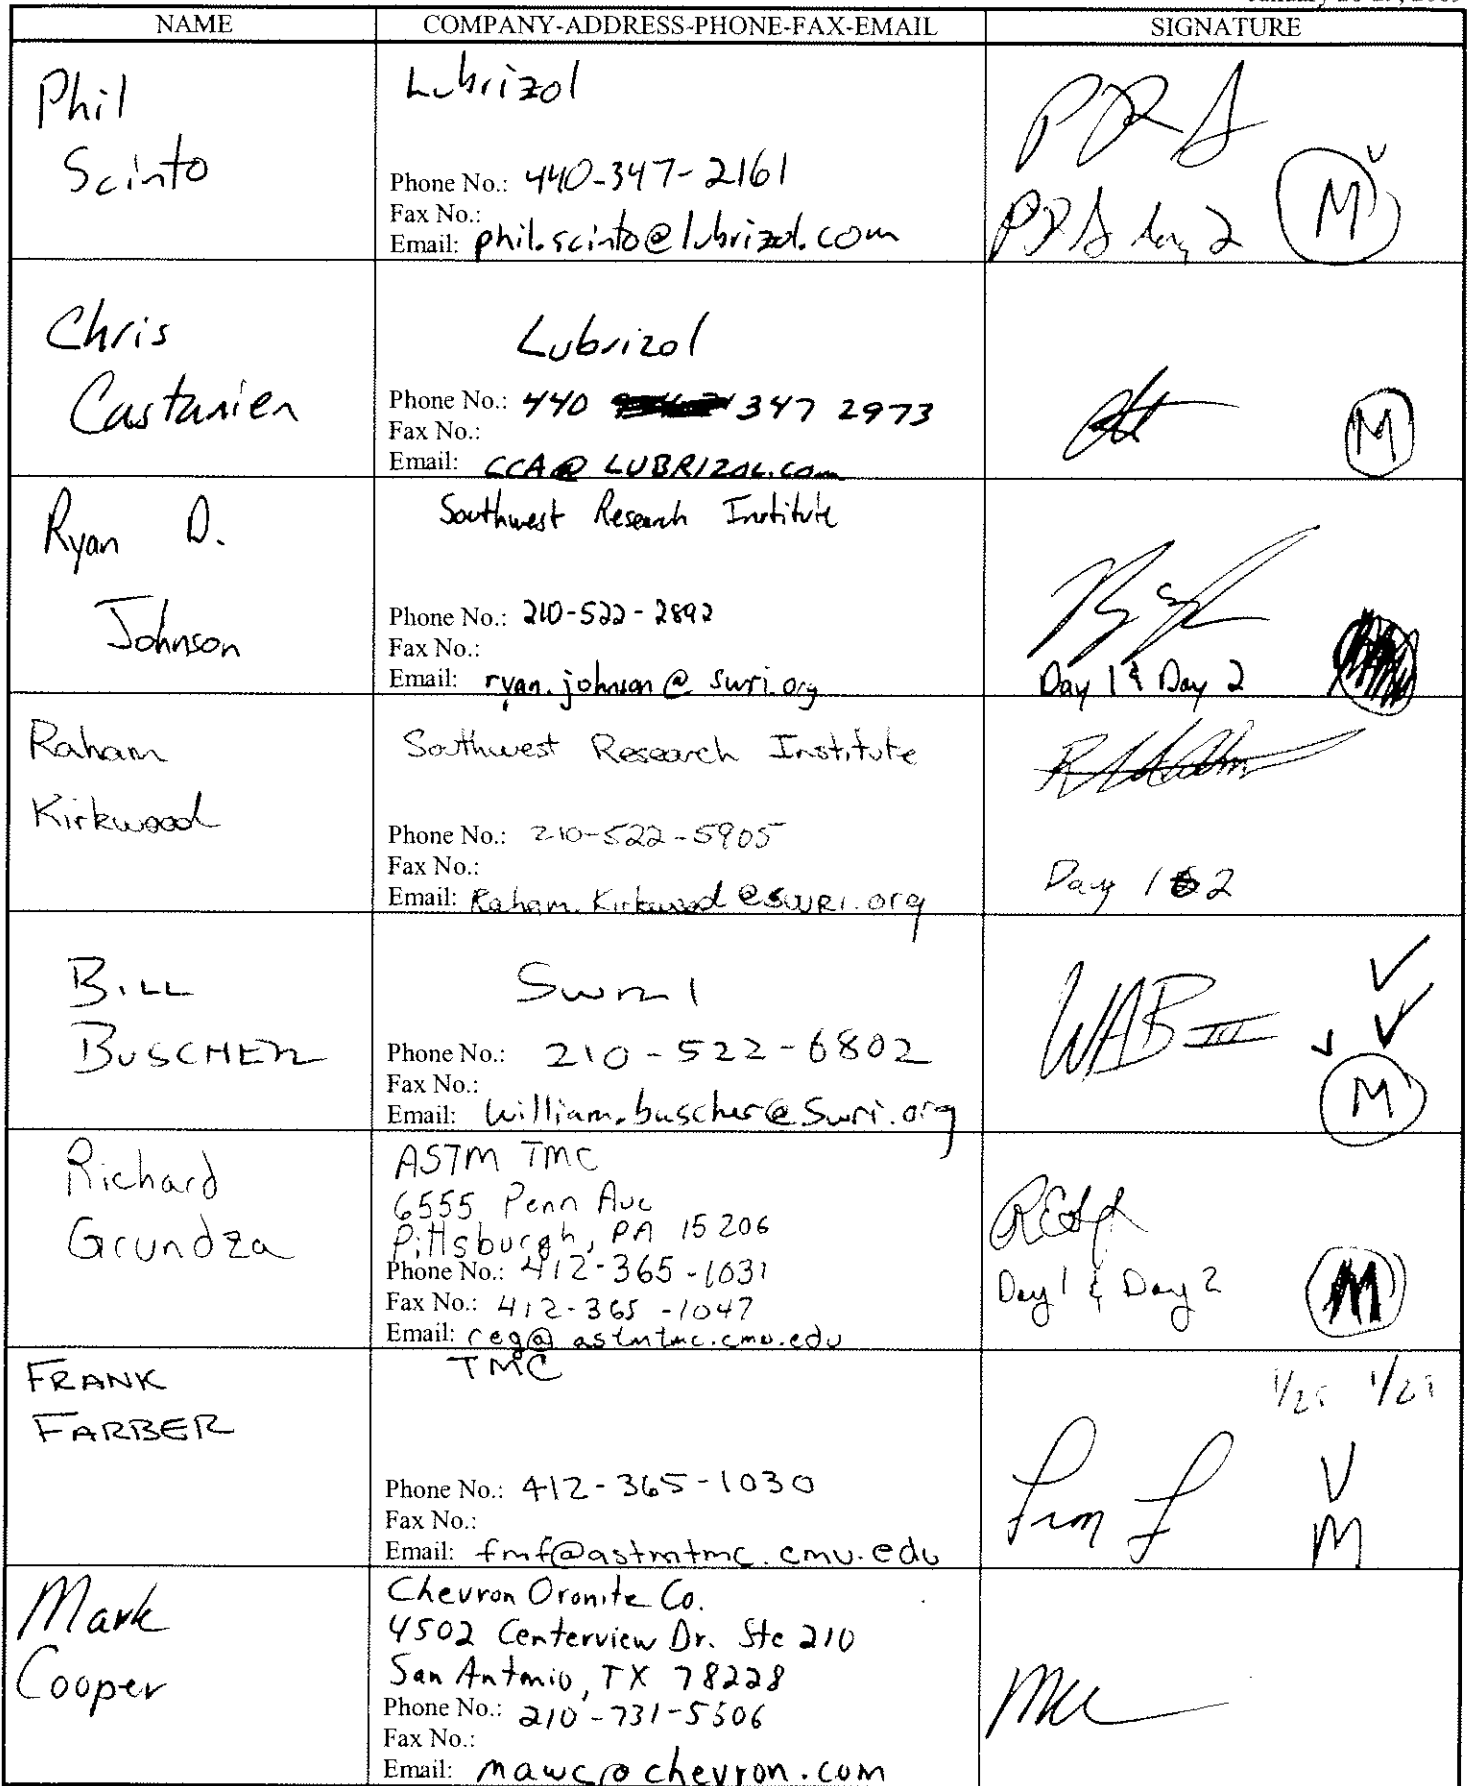 NAME COMPANY-ADDRESS-PHONE-FAX-EMAIL SIGNATURE
Phil
Scinto
Lubrizol
Phone No.: 440-347-2161
Fax No.:
Email: phil.scinto@lubrizol.com
PDS
PDS day 2
M
Chris
Castanien
Lubrizol
Phone No.: 440 347 2973
Fax No.:
Email: CCA@LUBRIZOL.com
M
Ryan D.
Johnson
Southwest Research Institute
Phone No.: 210-522-2892
Fax No.:
Email: ryan.johnson@swri.org
Day 1 & Day 2
Raham
Kirkwood
Southwest Research Institute
Phone No.: 210-522-5905
Fax No.:
Email: Raham.Kirkwood@SWRI.org
Day 1 & 2
BILL
BUSCHER
SwRI
Phone No.: 210-522-6802
Fax No.:
Email: william.buscher@swri.org
WAB III
M
Richard
Grundza
ASTM TMC
6555 Penn Ave
Pittsburgh, PA 15206
Phone No.: 412-365-1031
Fax No.: 412-365-1047
Email: reg@astmtmc.cmu.edu
Day 1 & Day 2
M
FRANK
FARBER
TMC
Phone No.: 412-365-1030
Fax No.:
Email: fmf@astmtmc.cmu.edu
M
Mark
Cooper
Chevron Oronite Co.
4502 Centerview Dr. Ste 210
San Antonio, TX 78228
Phone No.: 210-731-5606
Fax No.:
Email: mawc@chevron.com